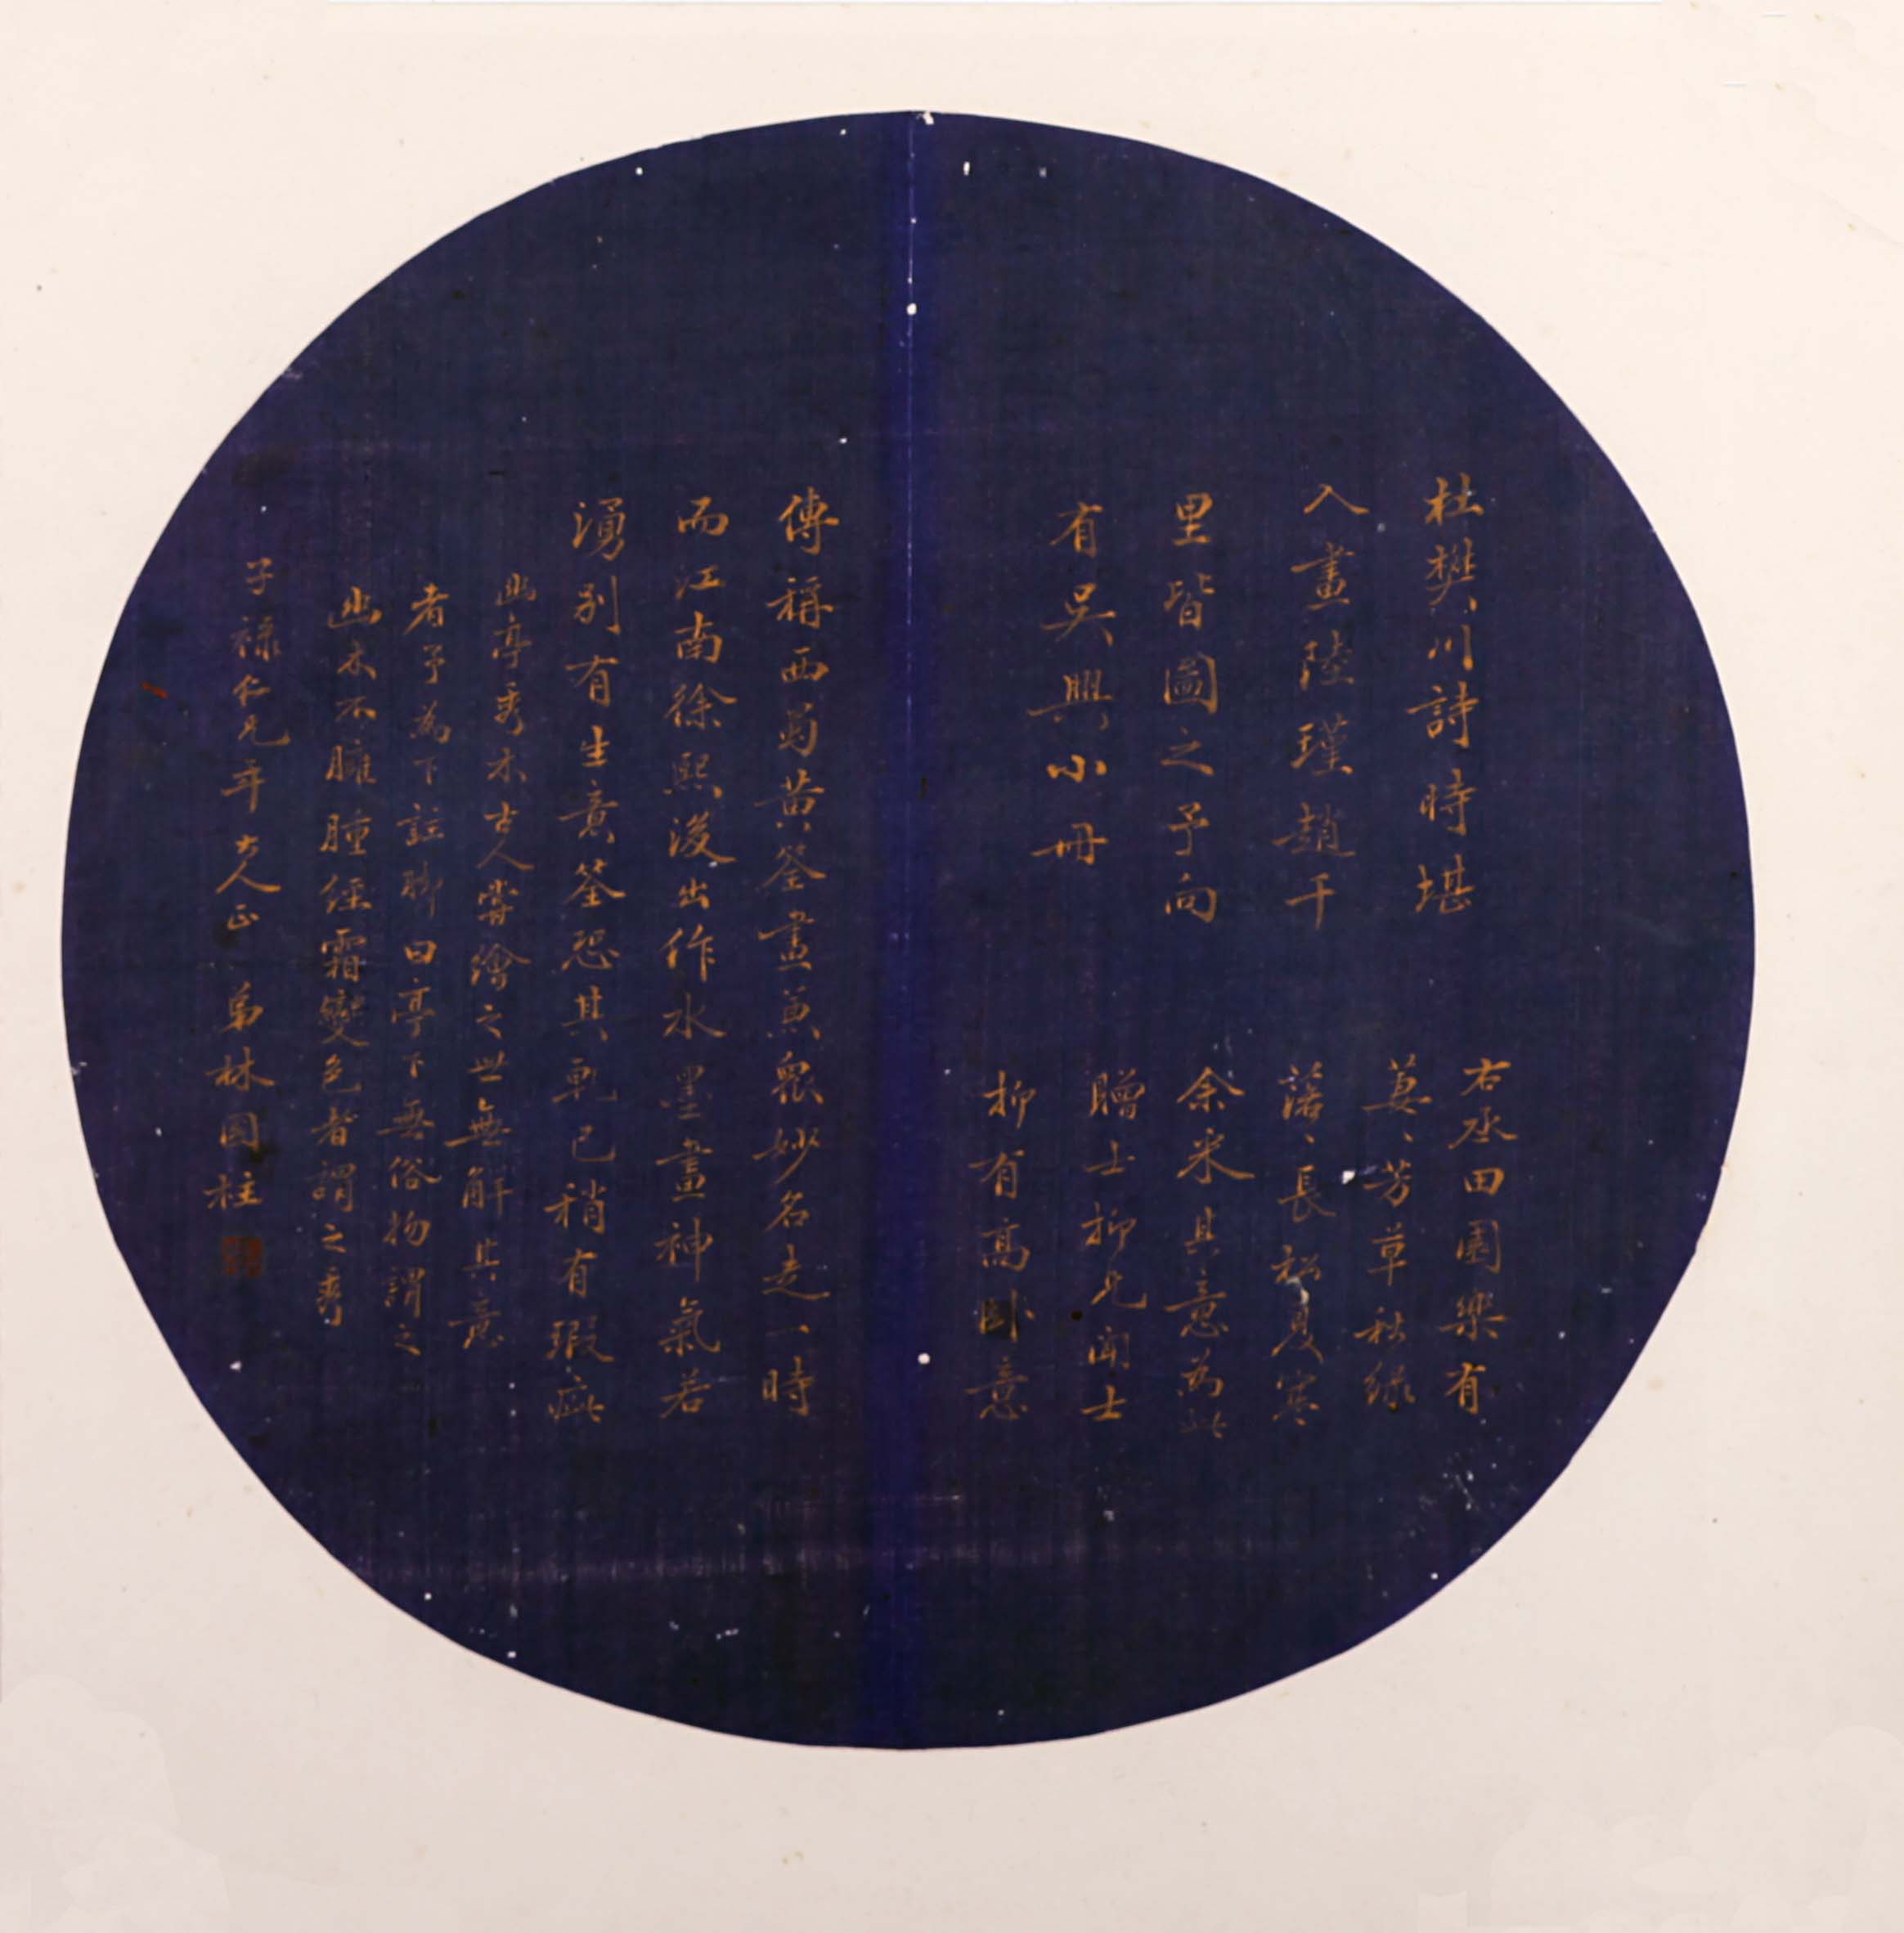 杜樊川詩時堪
入畫陸瑾趙千
里皆圖之予向
有吳興小冊
右丞田園樂有
萋、芳草秋綠
落、長松夏寒
余采其意為此
贈士抑先聞士
抑有高臥意
傳稱西蜀黃筌畫兼眾妙名走一時
而江南徐熙後出作水墨畫神氣若
湧別有生意筌恐其軋己稍有瑕疵
幽亭秀木古人嘗繪之世無解其意
者予為下註腳曰亭下無俗物謂之
幽木不臃腫經霜變色者謂之秀
子祿仁兄年大人正 弟林國柱